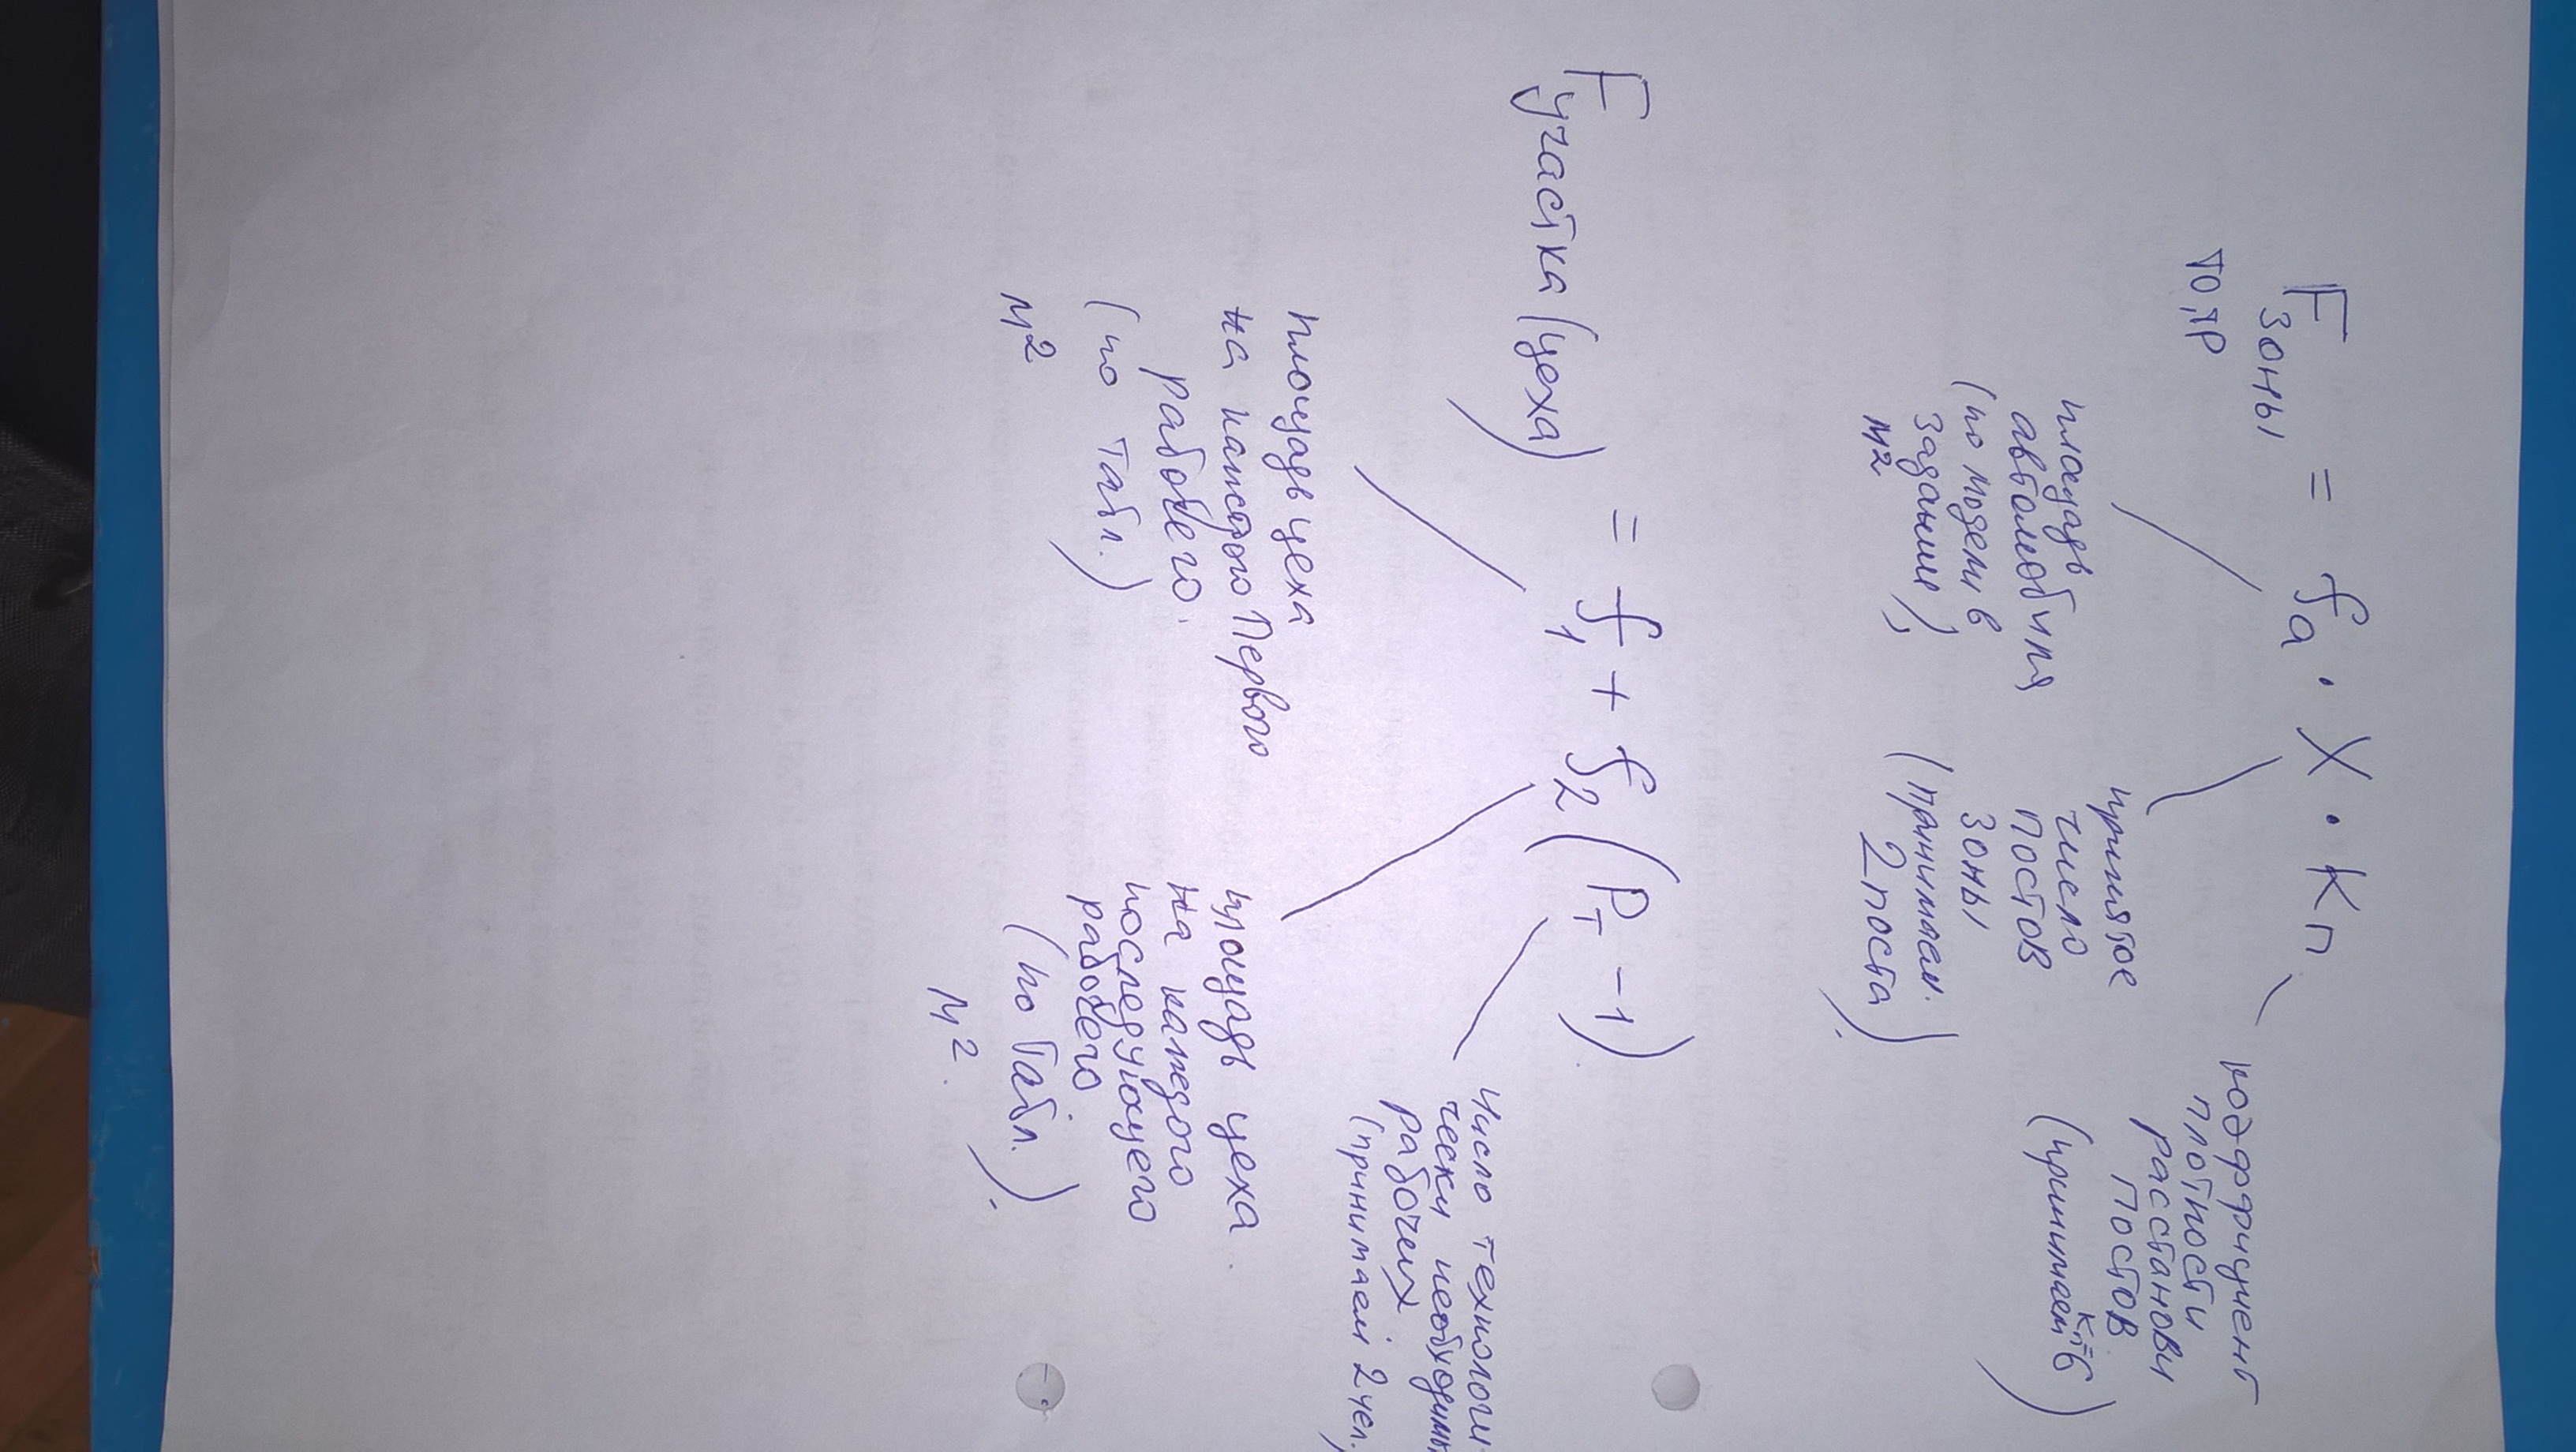 F зоны = fа · X · Kп
ТО,ТР
площадь
автомобиля
(по модели в
задании),
м2
принятое
число
постов
зоны
(принимаем
2 поста).
коэффициент
плотности
расстановки
постов
(принимаем Kп=6)
F участка (цеха) = f1 + f2 (Pт - 1)
площадь цеха
на каждого Первого
рабочего.
(по табл.)
м2
площадь цеха
на каждого
последующего
рабочего
(по табл.).
м2.
число технологи-
чески необходимых
рабочих
(принимаем 2 чел.)